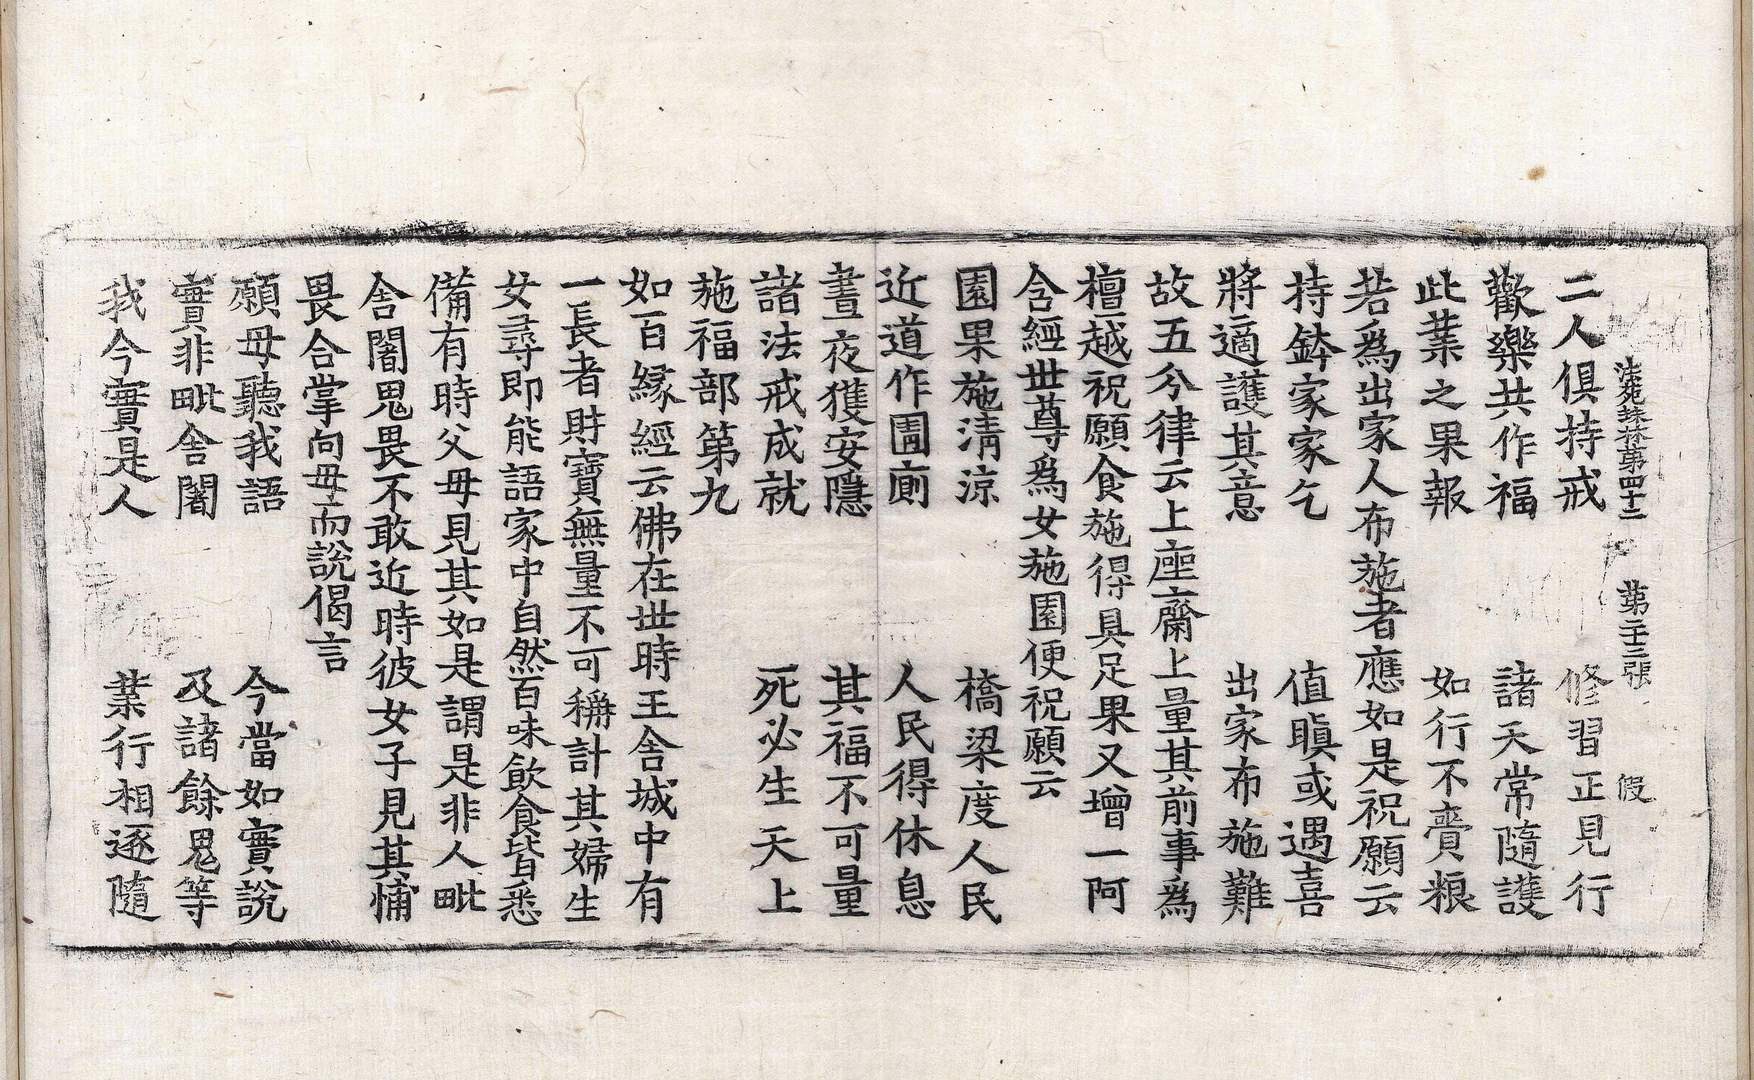 法苑珠林第四十二　第二十三張　假
二人俱持戒　修習正見行
歡樂共作福　諸天常隨護
此業之果報　如行不賷粮
若爲出家人布施者應如是祝願云
持鉢家家乞　值瞋或遇喜
將適護其意　出家布施難
故五分律云上座齋上量其前事爲
檀越祝願食施得具足果又增一阿
含經世尊爲女施園便祝願云
園果施清涼　橋梁度人民
近道作圊廁　人民得休息
晝夜獲安隱　其福不可量
諸法戒成就　死必生天上
施福部第九
如百縁經云佛在世時王舍城中有
一長者財寶無量不可稱計其婦生
女尋即能語家中自然百味飮食皆悉
備有時父母見其如是謂是非人毗
舍闍鬼畏不敢近時彼女子見其怖
畏合掌向母而說偈言
願母聽我語　今當如實說
實非毗舍闍　及諸餘鬼等
我今實是人　業行相逐隨